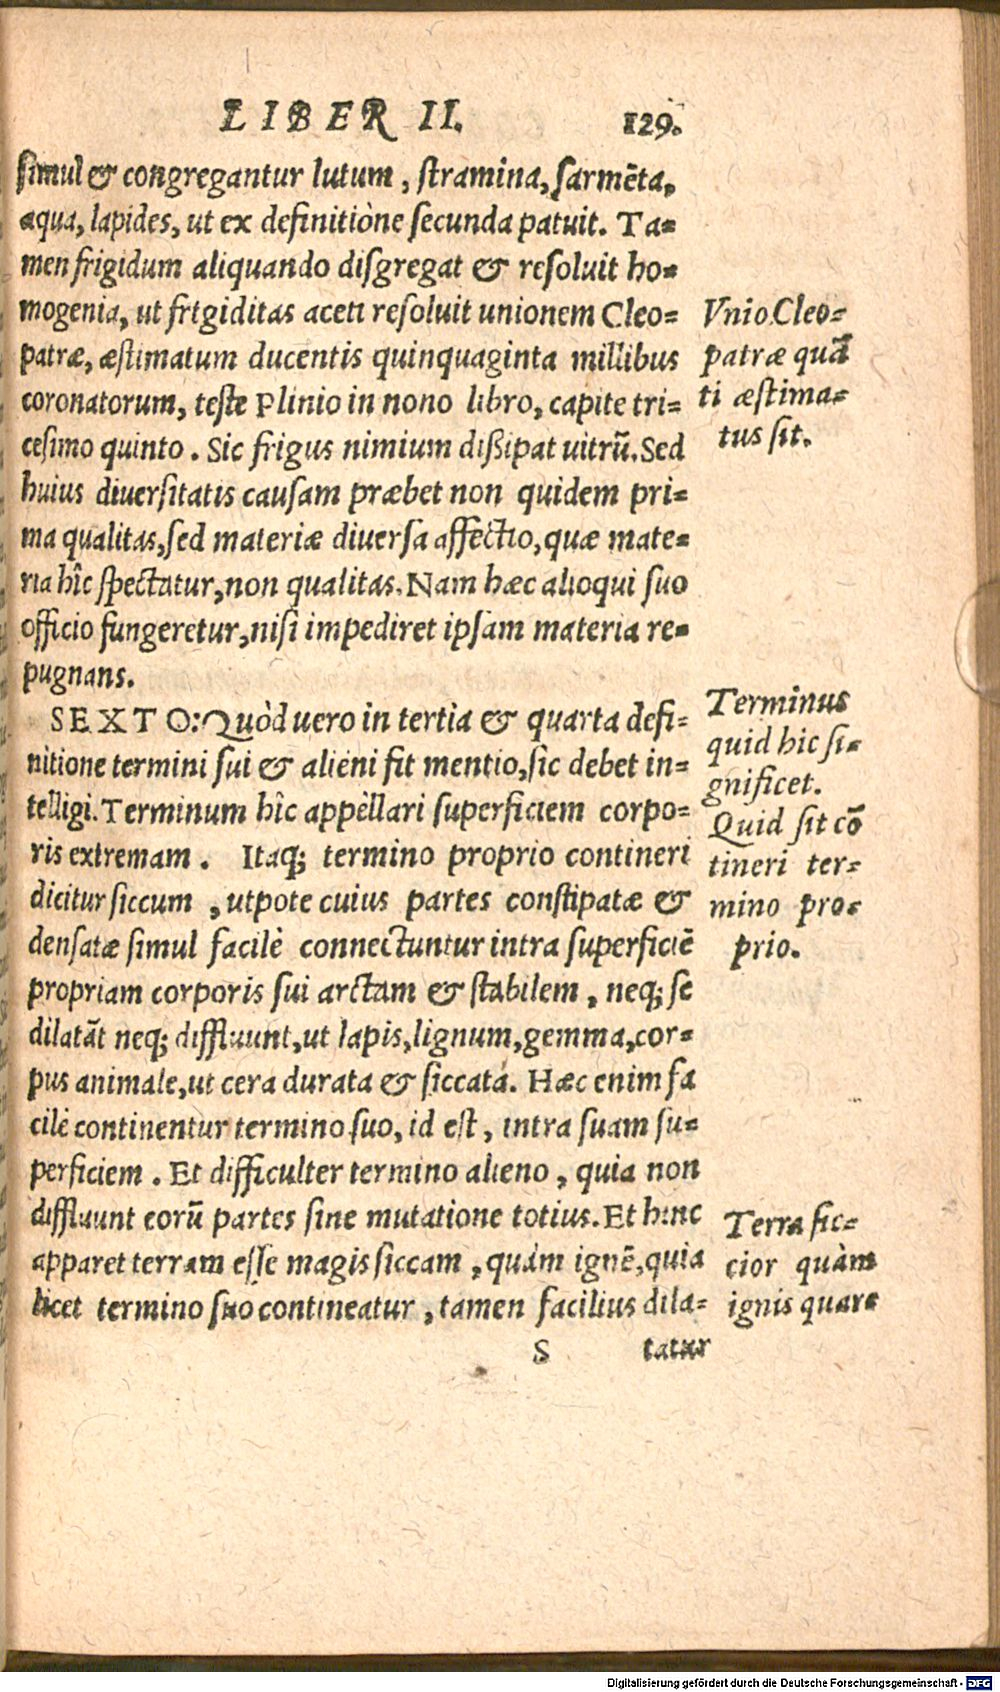 LIBER II. 129.
simul & congregantur lutum, stramina, sarmēta,
aqua, lapides, ut ex definitiòne secunda patuit. Ta-
men frigidum aliquando disgregat & resoluit ho-
mogenia, ut frigiditas aceti resoluit unionem Cleo-
patræ, æstimatum ducentis quinquaginta millibus
coronatorum, teste Plinio in nono libro, capite tri-
cesimo quinto. Sic frigus nimium dißipat uitrū. Sed
huius diuersitatis causam præbet non quidem pri-
ma qualitas, sed materiæ diuersa affectio, quæ mate-
ria hîc spectatur, non qualitas. Nam hæc alioqui suo
officio fungeretur, nisi impediret ipsam materia re-
pugnans.
SEXTO: Quòd uero in tertia & quarta defi-
nitione termini sui & alieni fit mentio, sic debet in-
telligi. Terminum hîc appellari superficiem corpo-
ris extremam. Itaq; termino proprio contineri
dicitur siccum, utpote cuius partes constipatæ &
densatæ simul facilè connectuntur intra superficiē
propriam corporis sui arctam & stabilem, neq; se
dilatāt neq; diffluunt, ut lapis, lignum, gemma, cor-
pus animale, ut cera durata & siccata. Hæc enim fa
cilè continentur termino suo, id est, intra suam su-
perficiem. Et difficulter termino alieno, quia non
diffluunt eorū partes sine mutatione totius. Et hinc
apparet terram esse magis siccam, quàm ignē, quia
licet termino suo contineatur, tamen facilius dila-
S tatur
Vnio Cleo-
patræ quā
ti æstima-
tus sit.
Terminus
quid hic si-
gnificet.
Quid sit cō
tineri ter-
mino pro-
prio.
Terra sic-
cior quàm
ignis quare
Digitalisierung gefördert durch die Deutsche Forschungsgemeinschaft - DFG